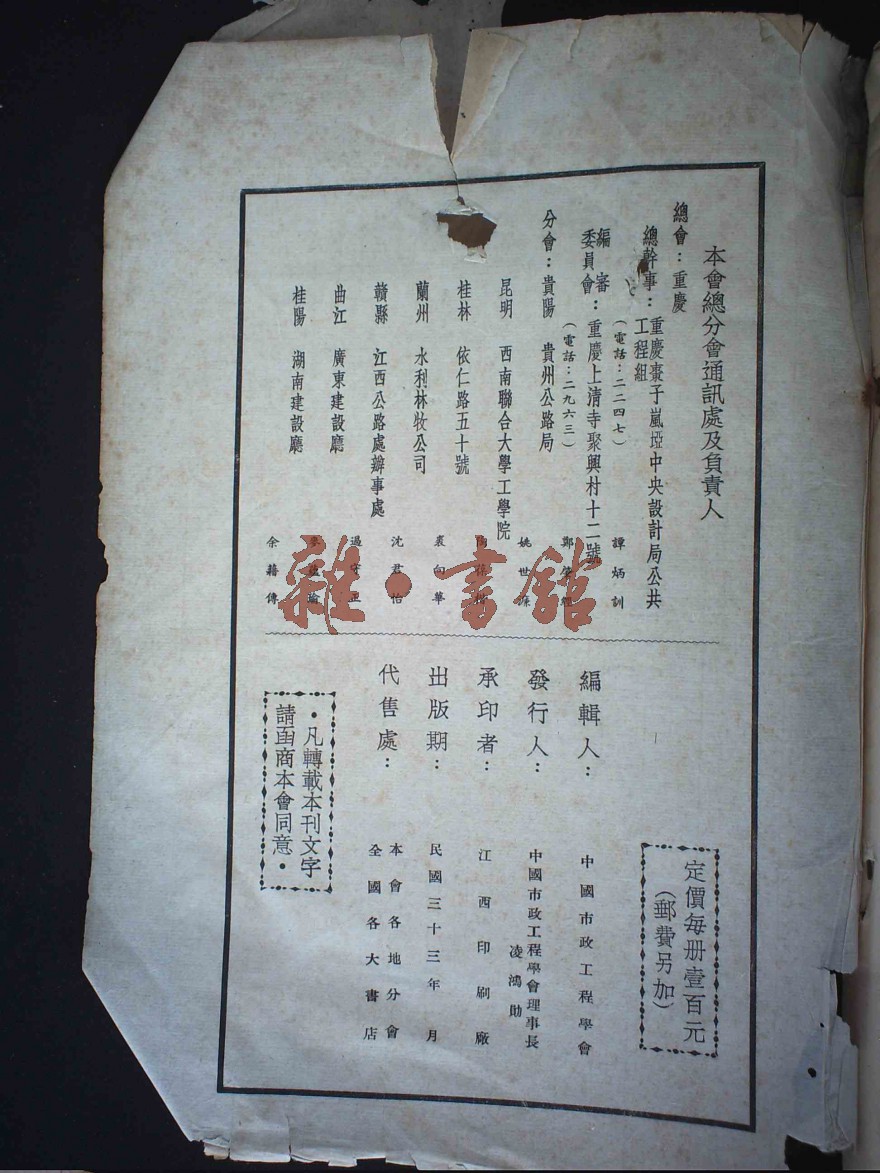 本會總分會通訊處及負責人
總會：重慶
總幹事：重慶棗子嵐埡中央設計局公共工程組
（電話：二二四七）
譚炳訓
編審委員會：重慶上清寺聚興村十二號
（電話：二九六三）
分會：貴陽 貴州公路局
姚世濂
昆明 西南聯合大學工學院
桂林 依仁路五十號
裘向華
蘭州 水利林牧公司
沈君怡
贛縣 江西公路處辦事處
過守正
曲江 廣東建設廳
桂陽 湖南建設廳
余籍傳
雜·書館
定價每册壹百元
（郵費另加）
編輯人：中國市政工程學會
發行人：中國市政工程學會理事長
凌鴻勛
承印者：江西印刷廠
出版期：民國三十三年 月
代售處：本會各地分會
全國各大書店
·凡轉載本刊文字
請函商本會同意·